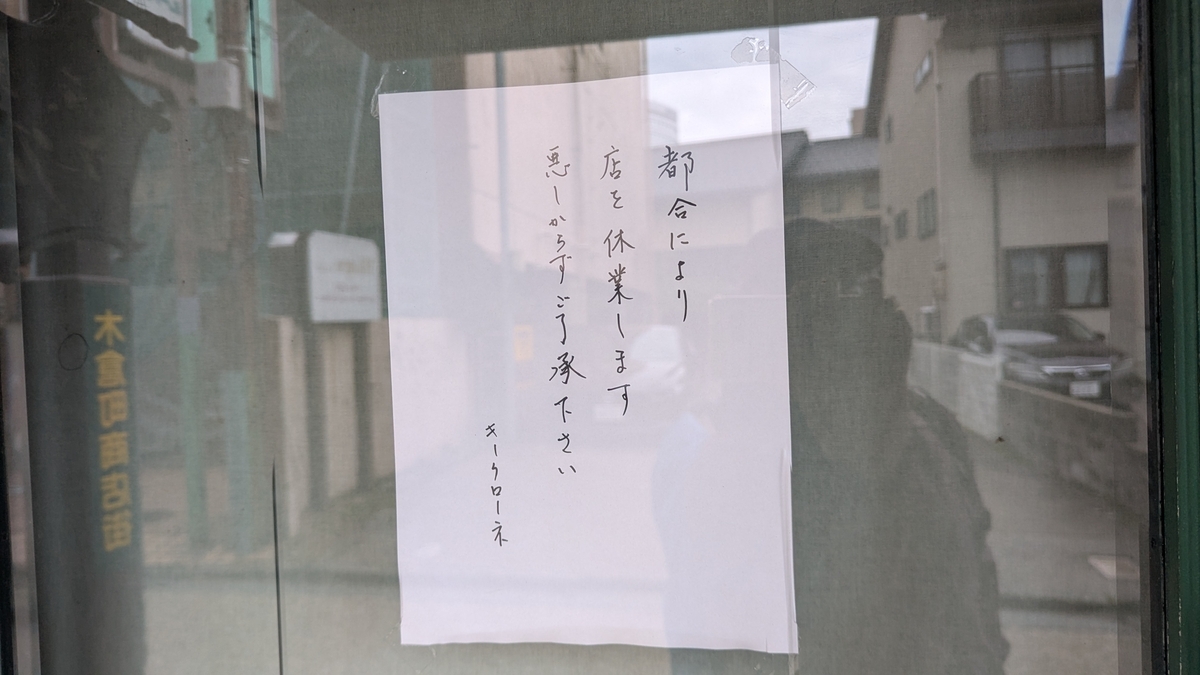 都合により
店を休業します
悪しからずご了承下さい
キークローネ
木倉町商店街